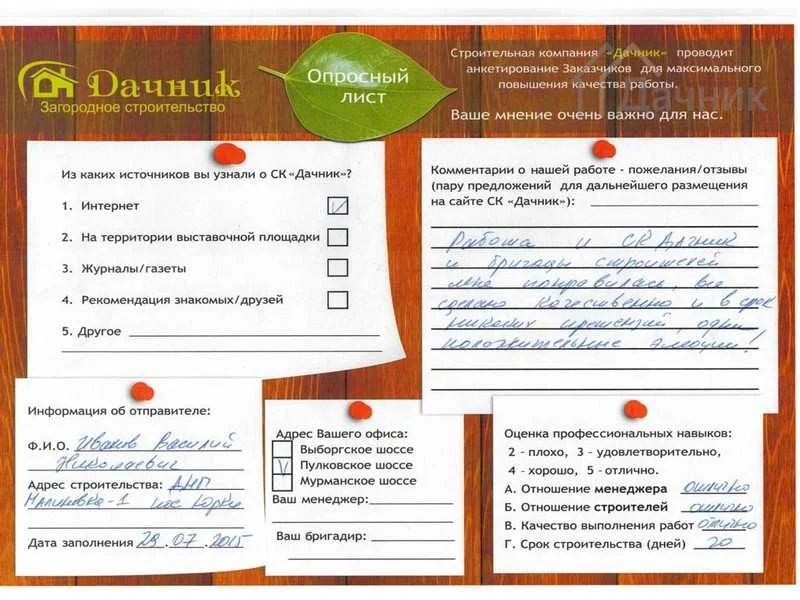 Дачник
Загородное строительство
Опросный
лист
Строительная компания «Дачник» проводит
анкетирование Заказчиков для максимального
повышения качества работы.
Ваше мнение очень важно для нас.
Дачник
Из каких источников вы узнали о СК «Дачник»?
1. Интернет
2. На территории выставочной площадки
3. Журналы/газеты
4. Рекомендация знакомых/друзей
5. Другое
Комментарии о нашей работе - пожелания/отзывы
(пару предложений для дальнейшего размещения
на сайте СК «Дачник»):
Работа и СК Дачник
и бригады строителей
мне понравилась, все
сделано качественно и в срок
никаких претензий, одни
положительные эмоции!
Информация об отправителе:
Ф.И.О. Иванов Василий
Николаевич
Адрес строительства: ДНП
Малиновка-1 пос
Дата заполнения 29.07.2015
Адрес Вашего офиса:
Выборгское шоссе
V Пулковское шоссе
Мурманское шоссе
Ваш менеджер:
Ваш бригадир:
Оценка профессиональных навыков:
2 - плохо, 3 - удовлетворительно,
4 - хорошо, 5 - отлично.
А. Отношение менеджера отлично
Б. Отношение строителей отлично
В. Качество выполнения работ отлично
Г. Срок строительства (дней) 20